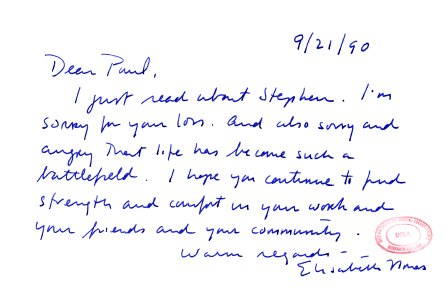 9/21/90
Dear Paul,
I just read about Stephen. I'm
sorry for your loss. And also sorry and
angry that life has become such a
battlefield. I hope you continue to find
strength and comfort in your work and
your friends and your community.
Warm regards -
Elisabeth